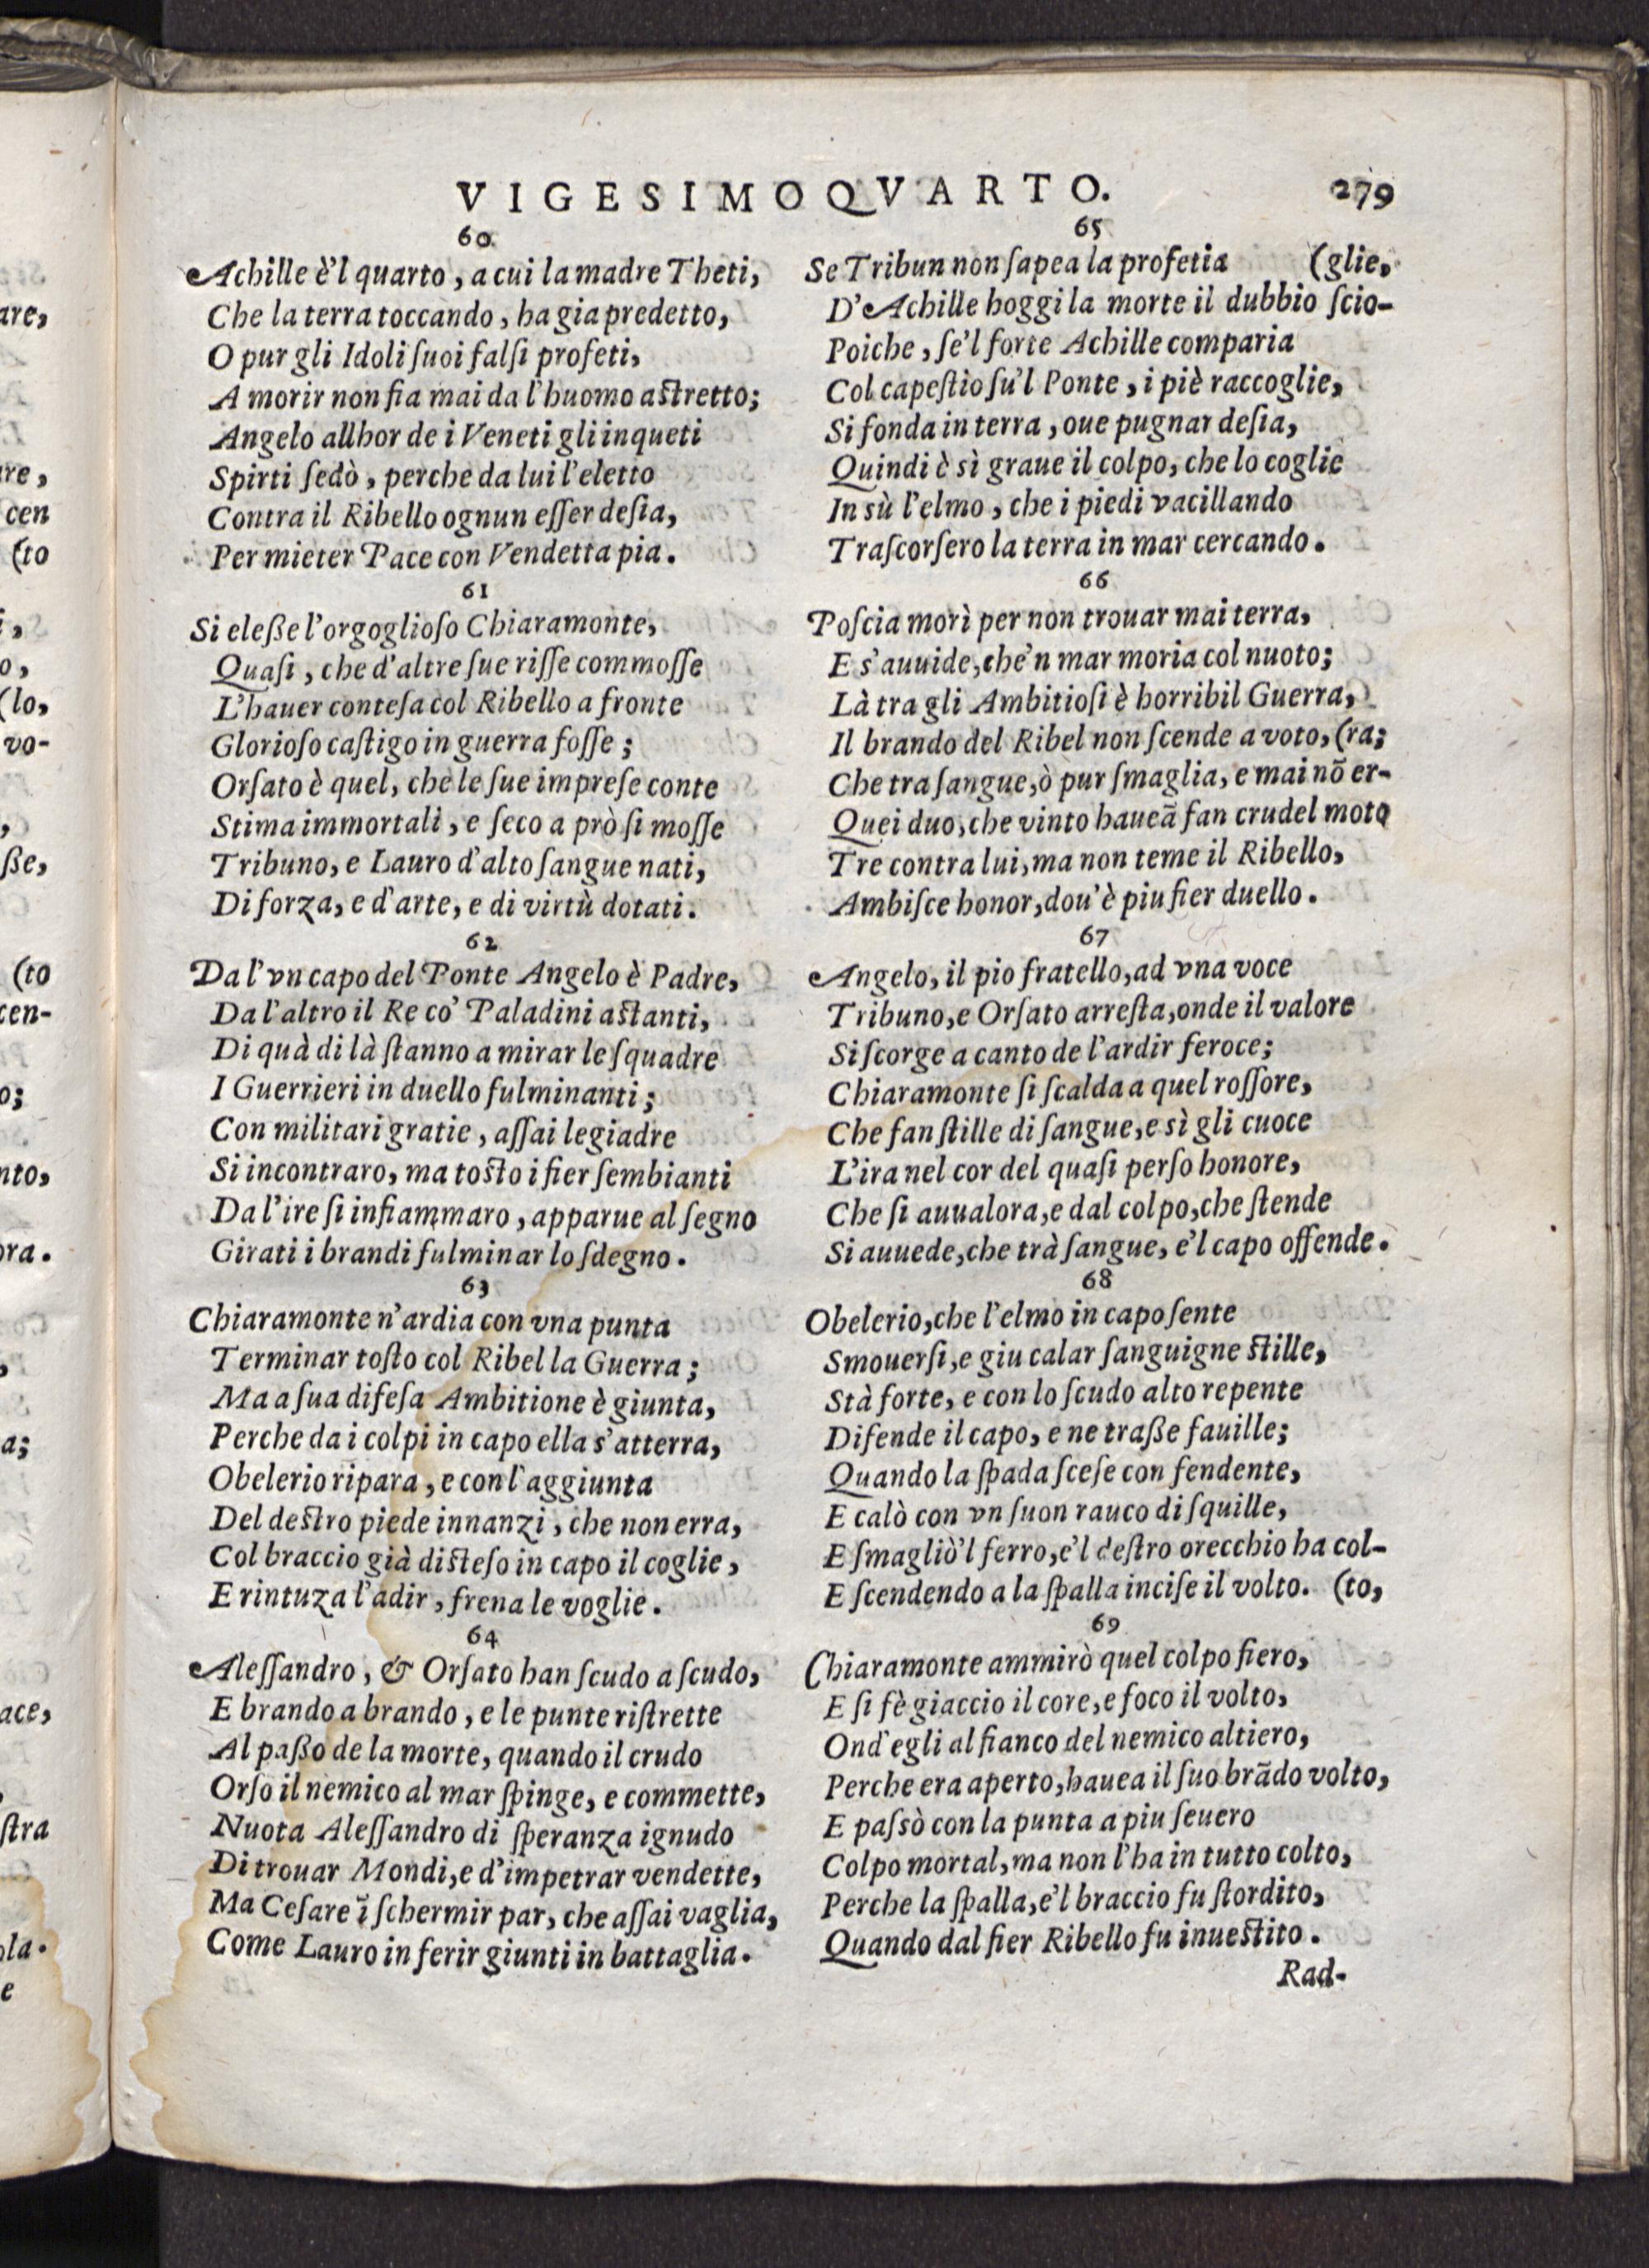 VIGESIMOQVARTO. 279
60
Achille è'l quarto, a cui la madre Theti,
Che la terra toccando, ha gia predetto,
O pur gli Idoli suoi falsi profeti,
A morir non fia mai da l'huomo astretto;
Angelo allhor de i Veneti gli inqueti
Spirti sedò, perche da lui l'eletto
Contra il Ribello ognun esser desia,
Per mieter Pace con Vendetta pia.
61
Si eleße l'orgoglioso Chiaramonte,
Quasi, che d'altre sue risse commosse
L'hauer contesa col Ribello a fronte
Glorioso castigo in guerra fosse;
Orsato è quel, che le sue imprese conte
Stima immortali, e seco a prò si mosse
Tribuno, e Lauro d'alto sangue nati,
Di forza, e d'arte, e di virtù dotati.
62
Da l'vn capo del Ponte Angelo è Padre,
Da l'altro il Re co' Paladini astanti,
Di quà di là stanno a mirar le squadre
I Guerrieri in duello fulminanti;
Con militari gratie, assai legiadre
Si incontraro, ma tosto i fier sembianti
Da l'ire si infiammaro, apparue al segno
Girati i brandi fulminar lo sdegno.
63
Chiaramonte n'ardia con vna punta
Terminar tosto col Ribel la Guerra;
Ma a sua difesa Ambitione è giunta,
Perche da i colpi in capo ella s'atterra,
Obelerio ripara, e con l'aggiunta
Del destro piede innanzi, che non erra,
Col braccio già disteso in capo il coglie,
E rintuza l'adir, frena le voglie.
64
Alessandro, & Orsato han scudo a scudo,
E brando a brando, e le punte ristrette
Al paßo de la morte, quando il crudo
Orso il nemico al mar spinge, e commette,
Nuota Alessandro di speranza ignudo
Di trouar Mondi, e d'impetrar vendette,
Ma Cesare ĩ schermir par, che assai vaglia,
Come Lauro in ferir giunti in battaglia.
65
Se Tribun non sapea la profetia (glie,
D'Achille hoggi la morte il dubbio scio-
Poiche, se'l forte Achille comparia
Col capestio su'l Ponte, i piè raccoglie,
Si fonda in terra, oue pugnar desia,
Quindi è sì graue il colpo, che lo coglie
In sù l'elmo, che i piedi vacillando
Trascorsero la terra in mar cercando.
66
Poscia morì per non trouar mai terra,
E s'auuide, che'n mar moria col nuoto;
Là tra gli Ambitiosi è horribil Guerra,
Il brando del Ribel non scende a voto, (ra;
Che tra sangue, ò pur smaglia, e mai nõ er-
Quei duo, che vinto haueã fan crudel moto
Tre contra lui, ma non teme il Ribello,
Ambisce honor, dou'è piu fier duello.
67
Angelo, il pio fratello, ad vna voce
Tribuno, e Orsato arresta, onde il valore
Si scorge a canto de l'ardir feroce;
Chiaramonte si scalda a quel rossore,
Che fan stille di sangue, e sì gli cuoce
L'ira nel cor del quasi perso honore,
Che si auualora, e dal colpo, che stende
Si auuede, che trà sangue, e'l capo offende.
68
Obelerio, che l'elmo in capo sente
Smouersi, e giu calar sanguigne stille,
Stà forte, e con lo scudo alto repente
Difende il capo, e ne traße fauille;
Quando la spada scese con fendente,
E calò con vn suon rauco di squille,
E smagliò'l ferro, e'l destro orecchio ha col-
E scendendo a la spalla incise il volto. (to,
69
Chiaramonte ammirò quel colpo fiero,
E si fè giaccio il core, e foco il volto,
Ond'egli al fianco del nemico altiero,
Perche era aperto, hauea il suo brãdo volto,
E passò con la punta a piu seuero
Colpo mortal, ma non l'ha in tutto colto,
Perche la spalla, e'l braccio fu stordito,
Quando dal fier Ribello fu inuestito.
Rad-